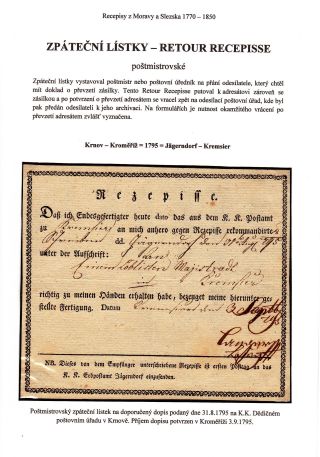 Recepisy z Moravy a Slezska 1770 – 1850
ZPÁTEČNÍ LÍSTKY – RETOUR RECEPISSE
poštmistrovské
Zpáteční lístky vystavoval poštmistr nebo poštovní úředník na přání odesilatele, který chtěl
mít doklad o převzetí zásilky. Tento Retour Recepisse putoval k adresátovi zároveň se
zásilkou a po potvrzení o převzetí adresátem se vracel zpět na odesílací poštovní úřad, kde byl
pak předán odesilateli k jeho archivaci. Na formulářích je nutnost okamžitého vrácení po
převzetí adresátem zvlášť vyznačena.
Krnov – Kroměříž = 1795 = Jägerndorf – Kremsier
Rezepisse.
Daß ich Endesgefertigter heute dato das aus dem K. K. Postamt
zu Kremsier an mich anhero gegen Rezepisse rekommandirte
Schreiben dd. Jägerndorf den 31
unter der Aufschrift: An
Einen löblichen Magistrat
Kremsier
richtig zu meinen Händen erhalten habe, bezeuget meine hierunter ge-
stellte Fertigung. Datum Kremsier den 3
NB. Dieses von dem Empfänger unterschriebene Rezepisse ist ersten Posttag an das
K. K. Erbpostamt Jägerndorf einzusenden.
Poštmistrovský zpáteční lístek na doporučený dopis podaný dne 31.8.1795 na K.K. Dědičném
poštovním úřadu v Krnově. Příjem dopisu potvrzen v Kroměříži 3.9.1795.